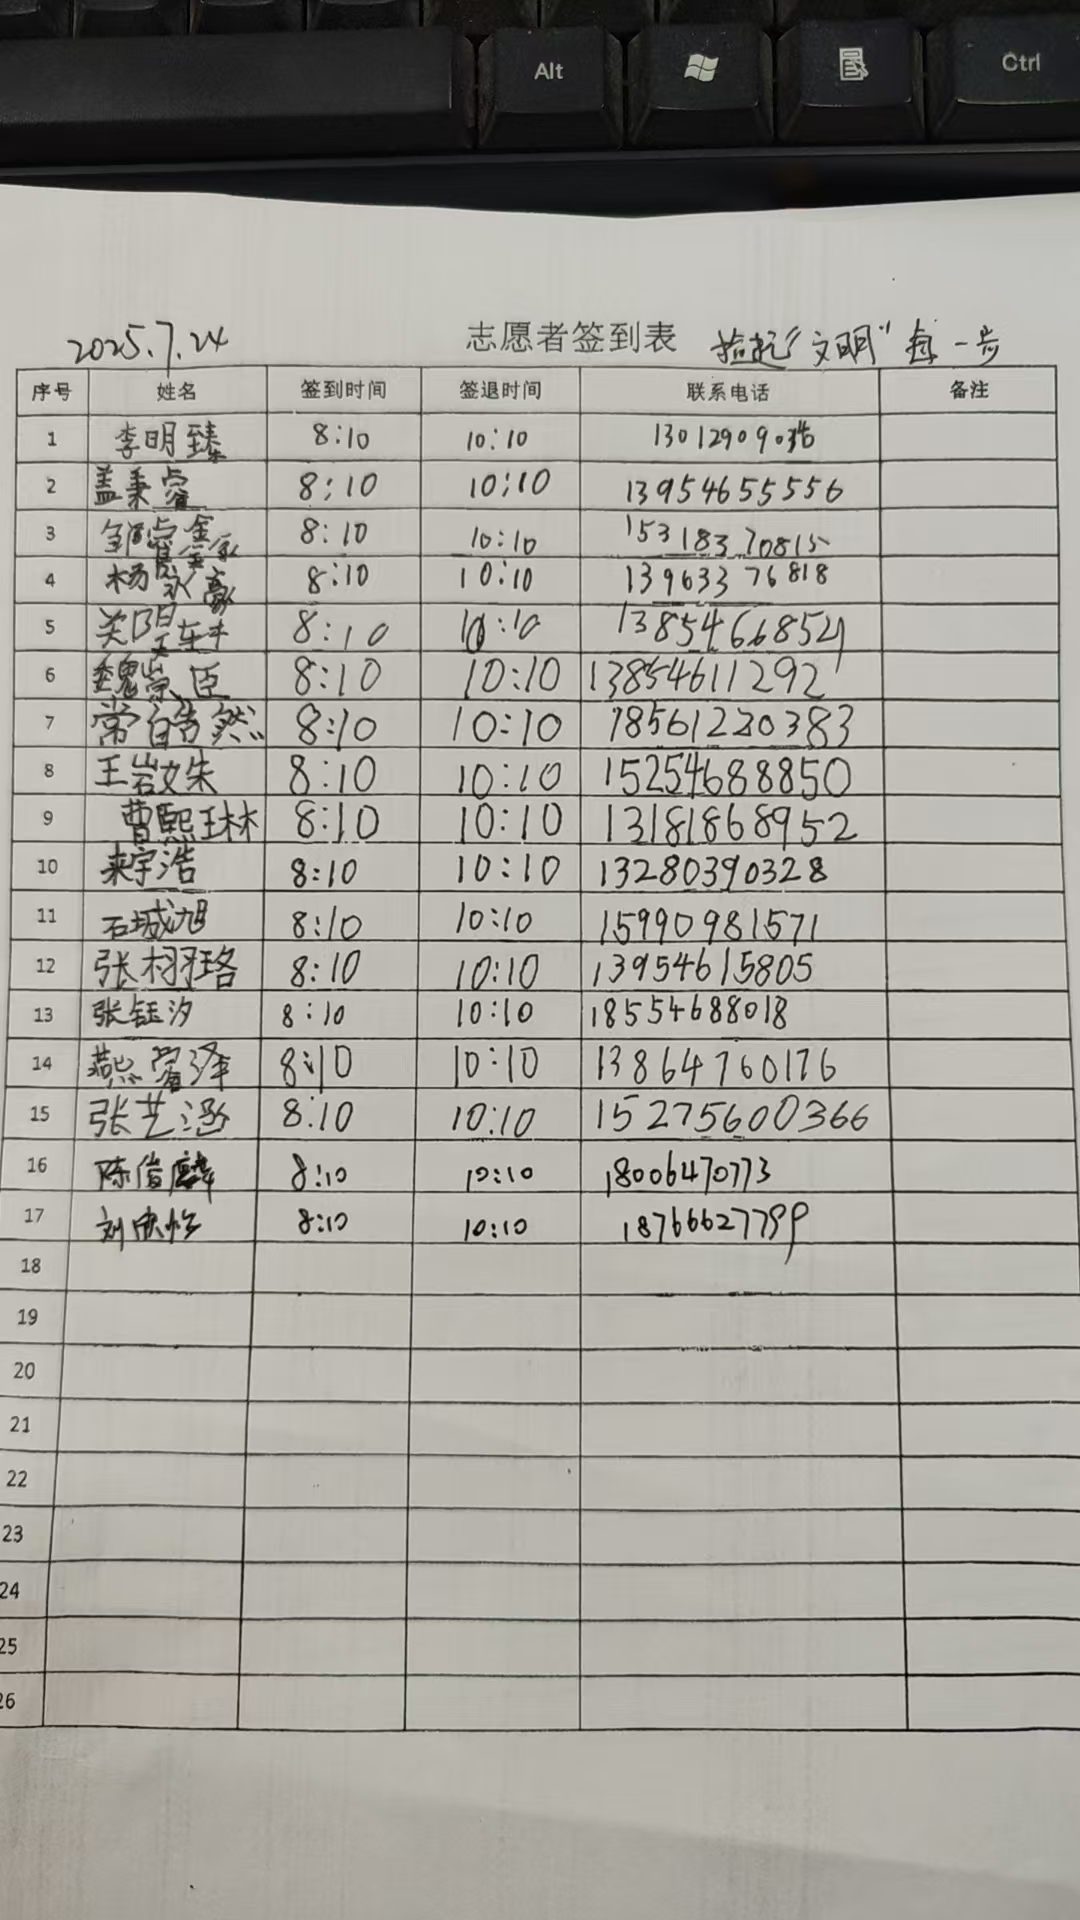 Alt
Ctrl
2025.7.24 志愿者签到表 捡起“文明”每一步
序号 姓名 签到时间 签退时间 联系电话 备注
1 李明臻 8:10 10:10
2 盖秉睿 8:10 10:10 13954655556
3 8:10 10:10 15318370815
4 杨永豪 8:10 10:10 13963376818
5 8:10 10:10 13854668521
6 魏崇臣 8:10 10:10 13854611292
7 常皓然 8:10 10:10 18561220383
8 王岩文朱 8:10 10:10 15254688850
9 曹熙琳 8:10 10:10 13181868952
10 来宇浩 8:10 10:10 13280390328
11 石城旭 8:10 10:10 15990981571
12 张栩珞 8:10 10:10 13954615805
13 张钰汐 8:10 10:10 18554688018
14 燕睿泽 8:10 10:10 13864760176
15 张艺涵 8:10 10:10 15275600366
16 陈俊麟 8:10 10:10 18006470773
17 刘欣怡 8:10 10:10 18766627799
18
19
20
21
22
23
24
25
26